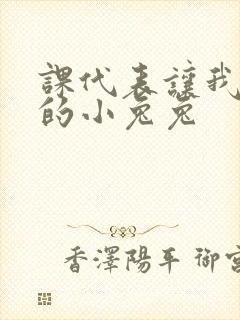 課代表讓我
的小兔兔
香澤陽平 御宮